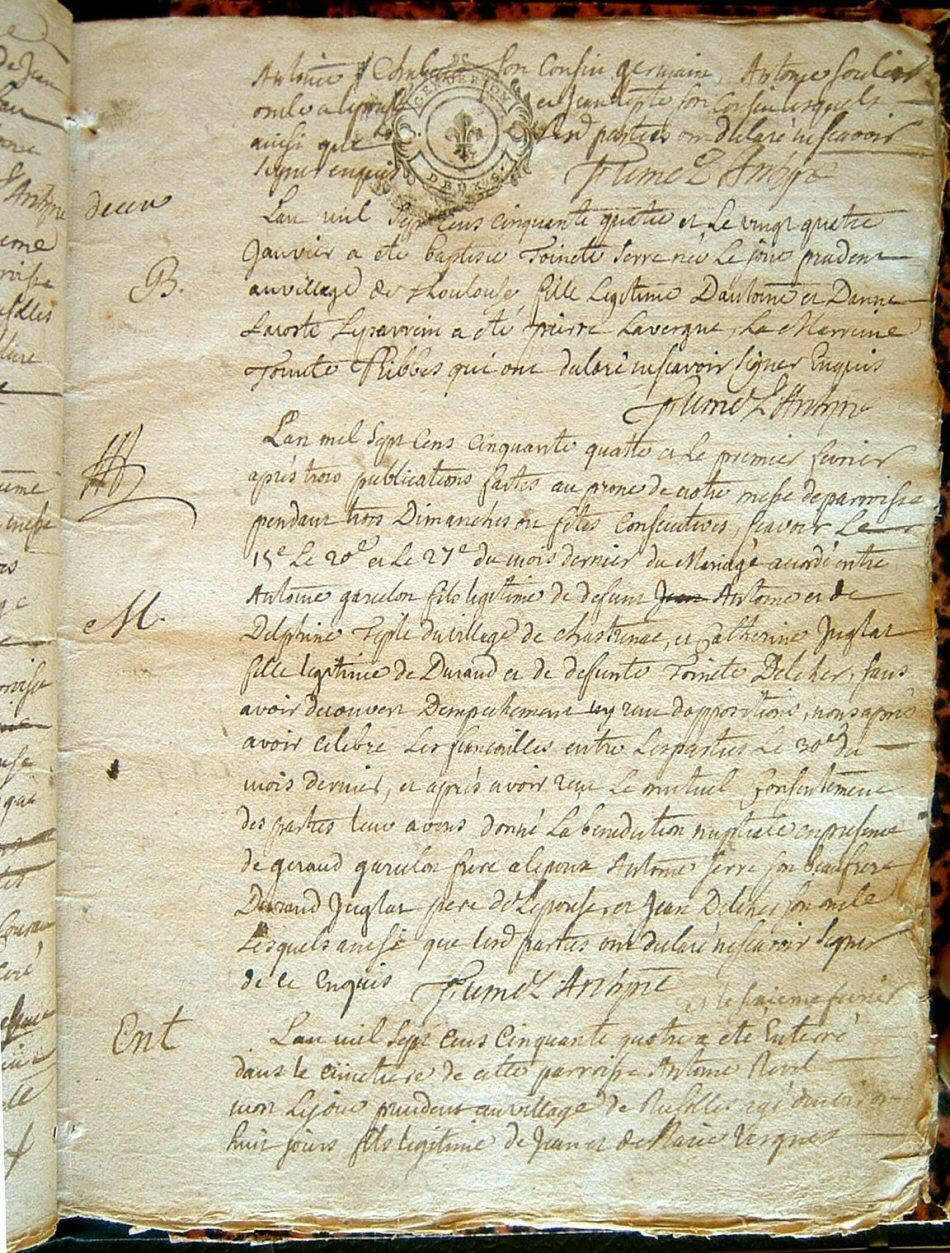 Antoine son Cousin germain, Antoine
oncle a lepouse et Jean son Cousin lesquels
ainsi que lesd parties ont declaré ne scavoir
signer enquis
GEN
DEUX S
Lan mil Sept cens cinquante quatre et Le vingt quatre
Janvier a eté baptisée Toinete Serre née Le jour precedent
B.
au village de Thoulouse fille Legitime Dantoine et Danne
Lacoste Le parrein a eté pierre Lavergne, La Marreine
Toinete Ribbes qui ont declaré ne scavoir signer Enquis
Lan mil Sept cens cinquante quatre et Le premier fevrier
après trois publications faites au prone de notre messe de paroisse
pendant trois Dimanches ou fetes Consecutives, scavoir Le
15e Le 20e et Le 27e du mois dernier du Mariage acordé entre
M.
Antoine garcelon fils legitime de defunt Jean Antoine et de
Delphine du village de et Catherine Juglar
fille legitime de Durand et de defunte Toinete Delcher, sans
avoir decouvert Dempechement ny reçu doppositions, nous après
avoir celebré Les fiancailles entre Les parties Le 30e du
mois dernier, et après avoir reçu Le mutuel Consentement
des parties leur avons donné La benediction nuptiale en presence
de geraud garcelon frere a lepoux Antoine Serre son beaufrere
Durand Juglar pere de Lepouse et Jean Delcher son oncle
Lesquels ainsi que lesd parties ont declaré ne scavoir signer
de ce Enquis
et le fevrier
Ent
Lan mil Sept cens cinquante quatre a été Enterré
dans le cimetiere de cette parroisse Antoine
mort Le jour precedent au village de agé denviron
huit jours fils legitime de Jean et de Marie Vergnes